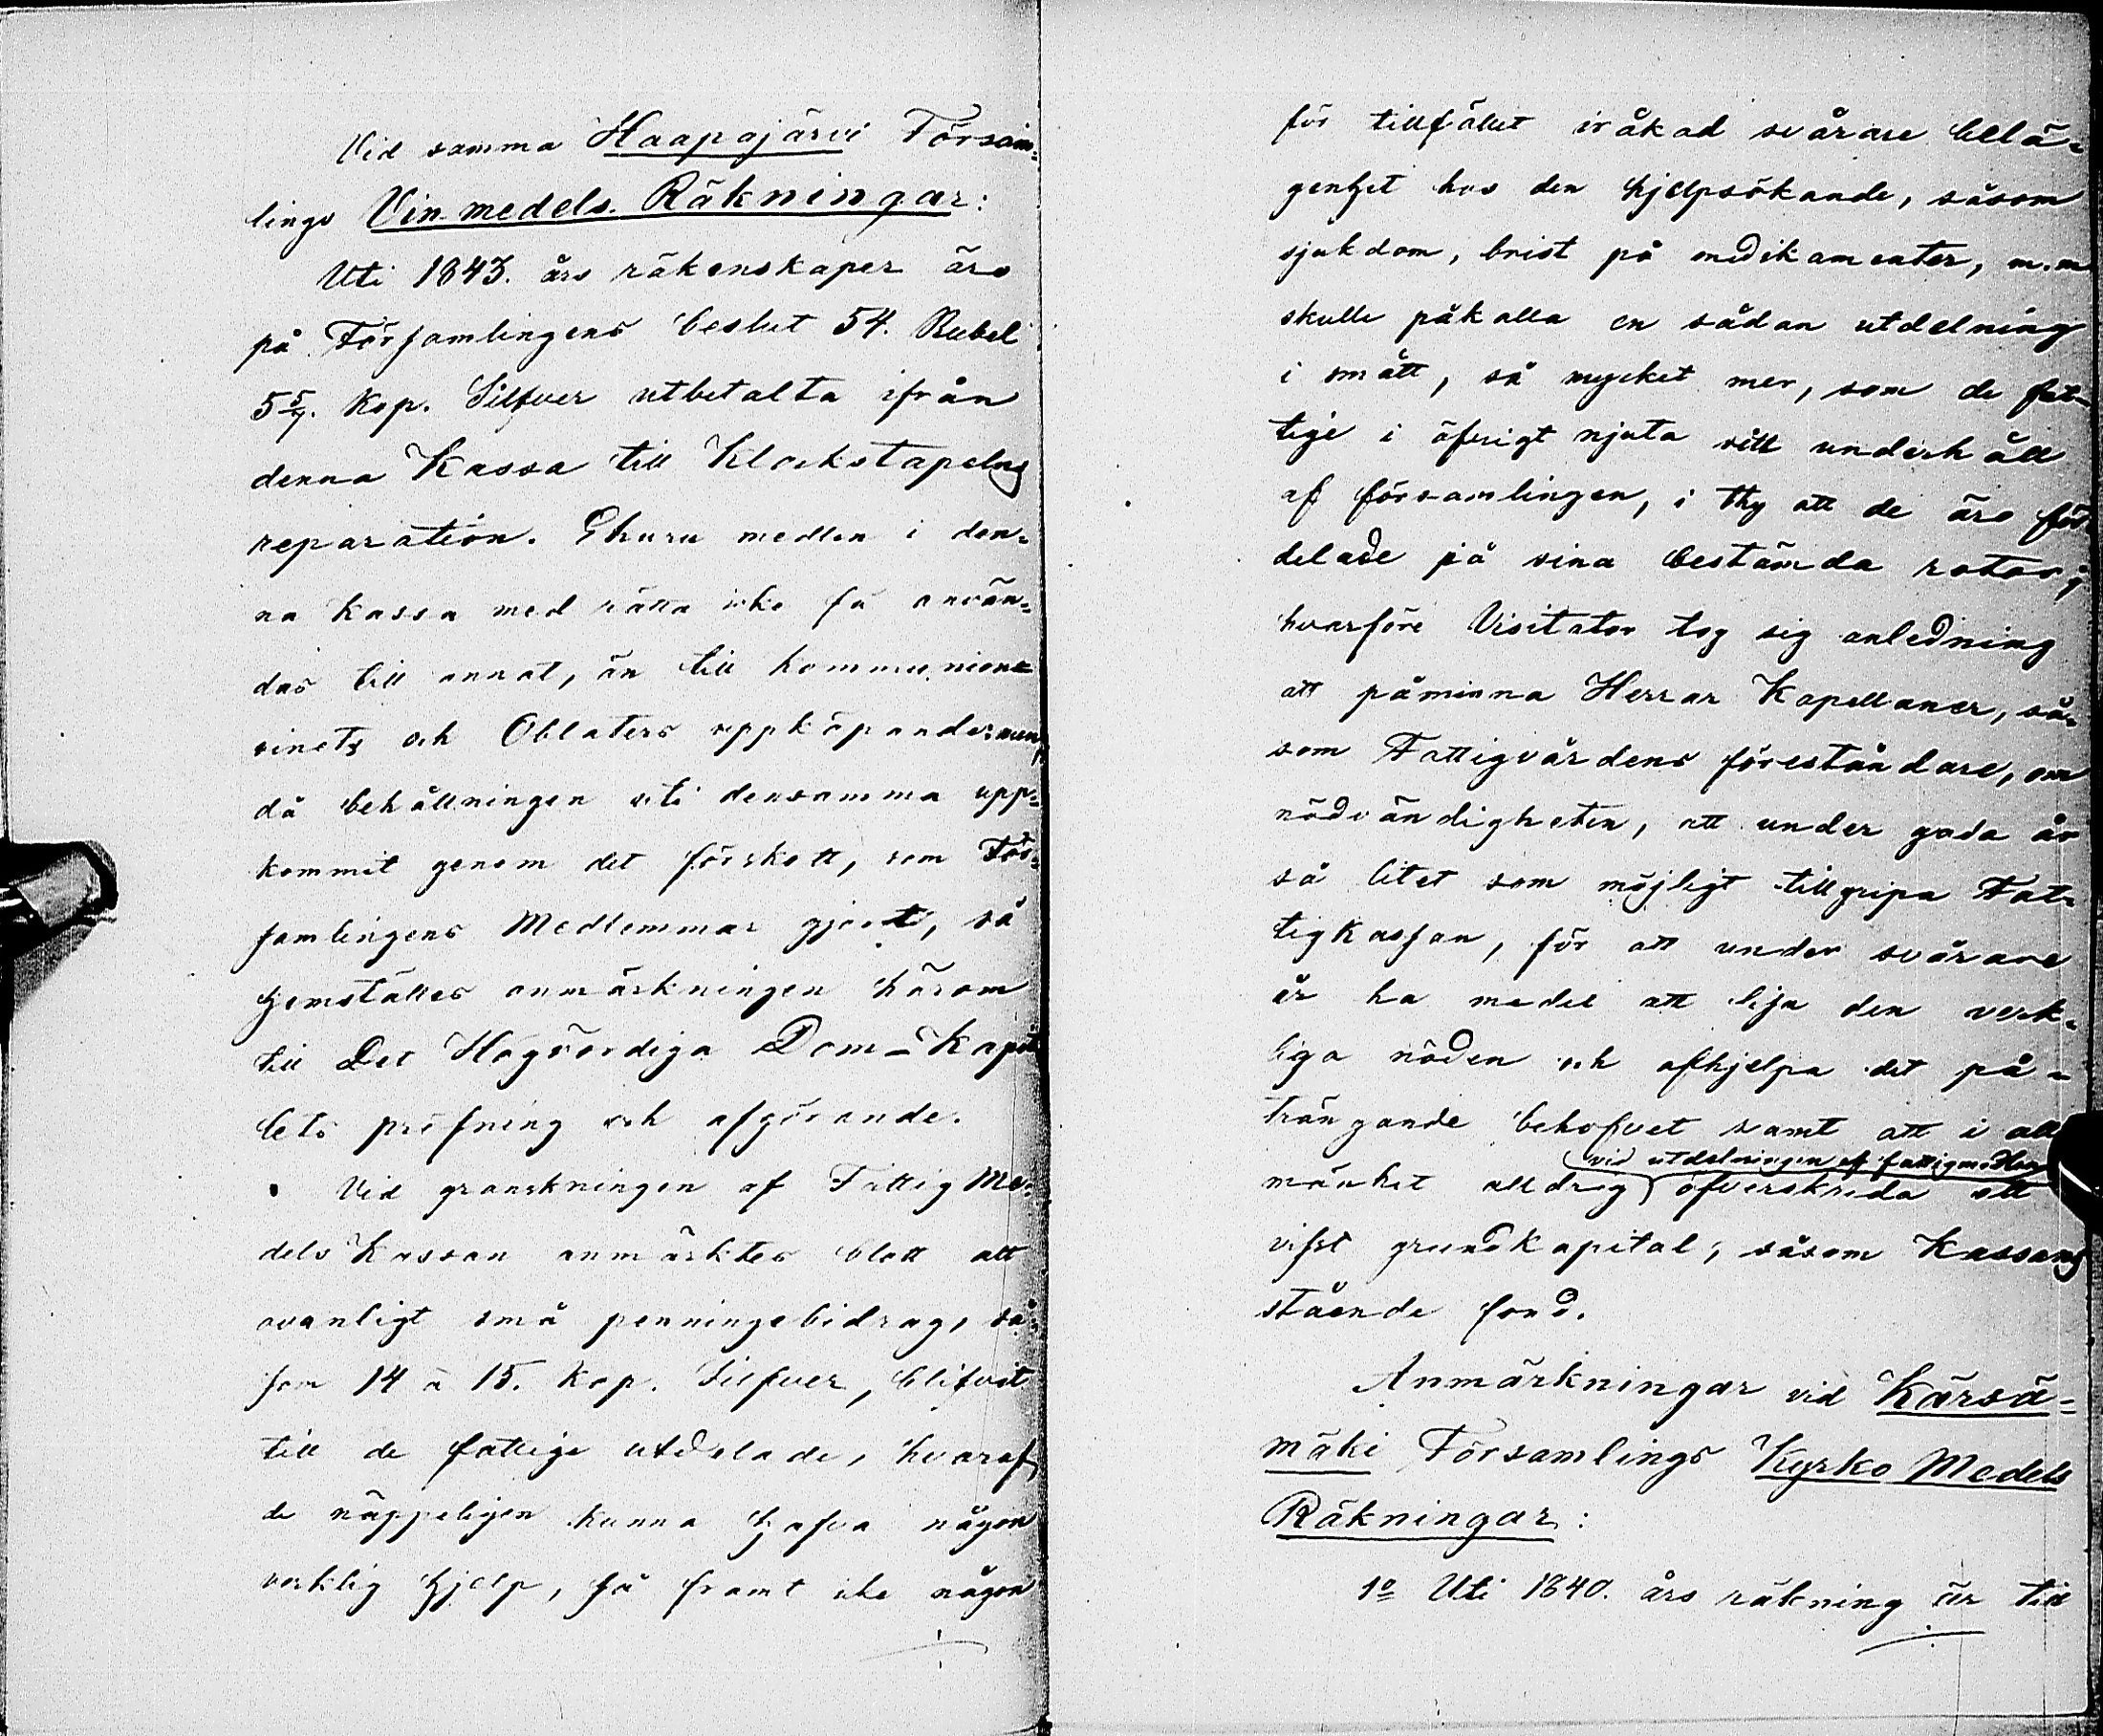 Vid samma Haapajärvi Försam-
lings Vin-medels Räkningar:
Uti 1843. års räkenskaper äro
på Församlingens beslut 54. Rubel
5 5/7. Kop. Silfver utbetalta ifrån
denna Kassa till Klockstapelns
reparation. Ehuru medlen i den-
na Kassa med rätta icke få använ-
das till annat, än till kommunions
vinets och Oblaters uppköpande; men
då behållningen uti densamma upp-
kommit genom det förskott, som För-
samlingens Medlemmar gjort, så
hemställes anmärkningen härom
till Det Högvördiga Dom-Kapit-
lets pröfning och afgörande.
Vid granskningen af Fattig Me-
dels Kassan anmärktes blott att
ovanligt små penningebidrag, så-
som 14 à 15. Kop. Silfver, blifvit
till de fattige utdelade, hvaraf
de näppeligen kunna hafva någon
verklig hjelp, så framt icke någon
för tillfället iråkad svårare belä-
genhet hos den hjelpsökande, såsom
sjukdom, brist på medikamenter, m.m
skulle påkalla en sådan utdelning
i smått, så mycket mer, som de fat-
tige i öfrigt njuta sitt underhåll
af församlingen, i thy att de äro för-
delade på sina bestämda rotar;
hvarföre Visitator tog sig anledning
att påminna Herrar Kapellaner, så-
som Fattigvårdens föreståndare, om
nödvändigheten, att under goda år
så litet som möjligt tillgripa Fat-
tigkassan, för att under svårare
år ha medel att lisa den verk-
liga nöden och afhjelpa det på-
trängande behofvet samt att i all-
vid utdelningen af fattigmedlen
mänhet alldrig öfverskrida ett
visst grundkapital, såsom Kassans
stående fond.
Anmärkningar vid Kärsä-
mäki Församlings Kyrko Medels
Räkningar:
1o Uti 1840. års räkning är till